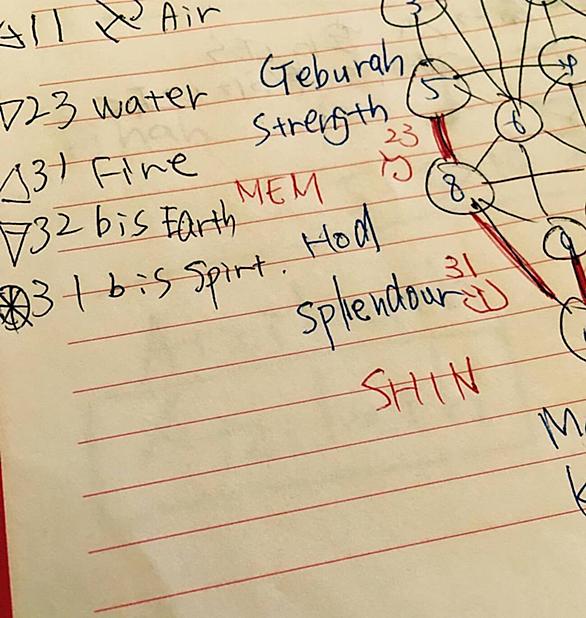 △11 א Air
▽23 water
△31 Fire
▽32 bis Earth
31 bis Spirit.
Geburah
Strength
23
מ
MEM
Hod
Splendour
31
ש
SHIN
3
5
6
8
9